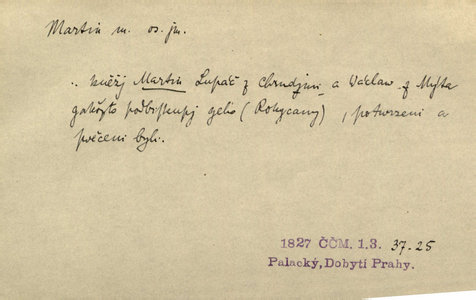 Martin m. os. jm.
.. kněžj Martin Lupáč z Chrudjmi a Václaw z Meyta
gakožto podbiskupj geho (Rokycany), potwrzeni a
swěceni byli.
1827 ČČM. 1.3. 37-25
Palacký, Dobytí Prahy.